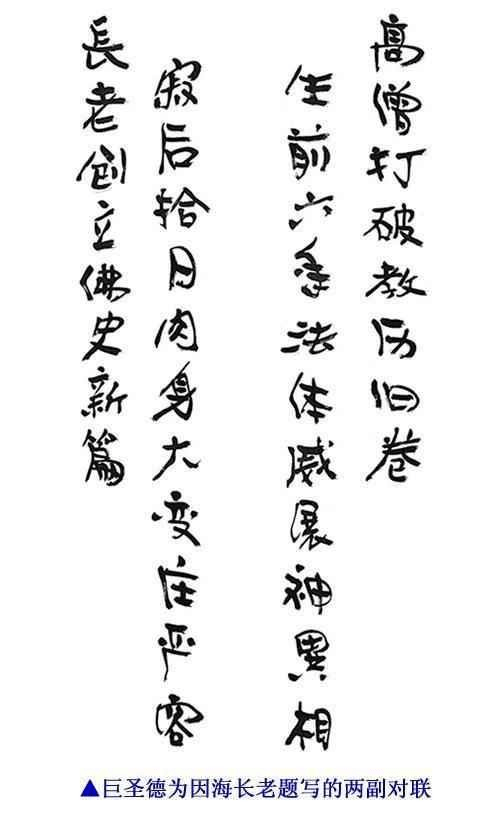 高僧打破教历旧卷
生前六年法体威展神異相
寂后拾日肉身大变庄严容
長老创立佛史新篇
▲巨圣德为因海长老题写的两副对联